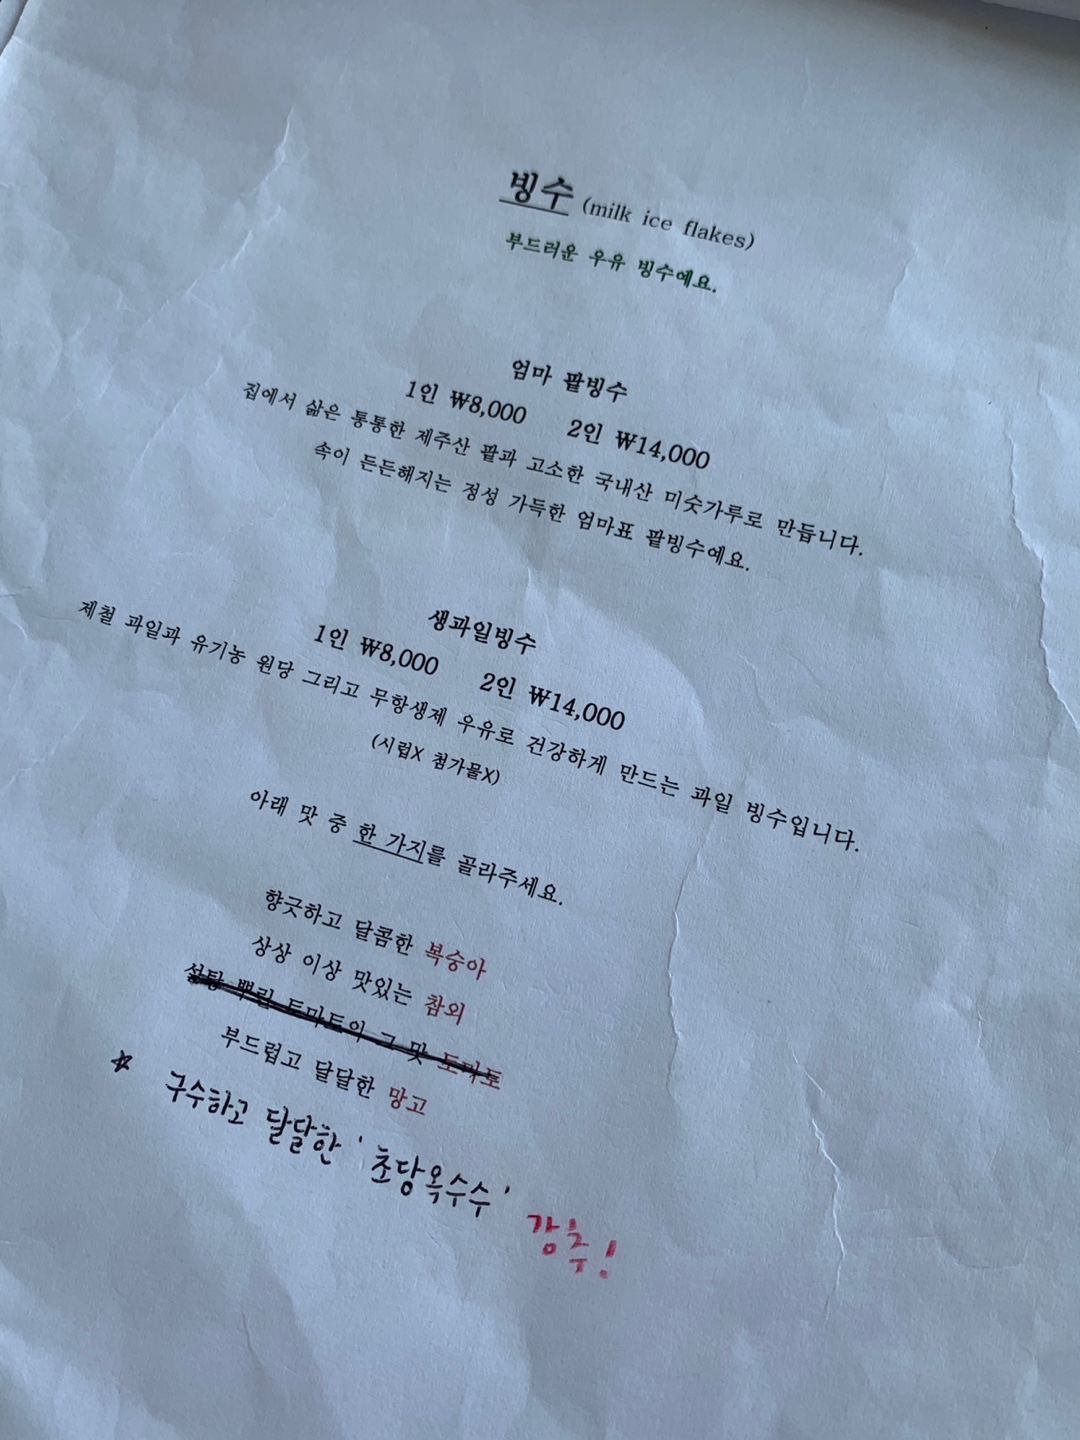 빙수 (milk ice flakes)
부드러운 우유 빙수예요.
엄마 팥빙수
1인 ₩8,000 2인 ₩14,000
집에서 삶은 통통한 제주산 팥과 고소한 국내산 미숫가루로 만듭니다.
속이 든든해지는 정성 가득한 엄마표 팥빙수예요.
생과일빙수
1인 ₩8,000 2인 ₩14,000
제철 과일과 유기농 원당 그리고 무항생제 우유로 건강하게 만드는 과일 빙수입니다.
(시럽X 첨가물X)
아래 맛 중 한 가지를 골라주세요.
향긋하고 달콤한 복숭아
상상 이상 맛있는 참외
설탕 뿌린 토마토의 그 맛 토마토
부드럽고 달달한 망고
☆ 구수하고 달달한 '초당옥수수' 강추!